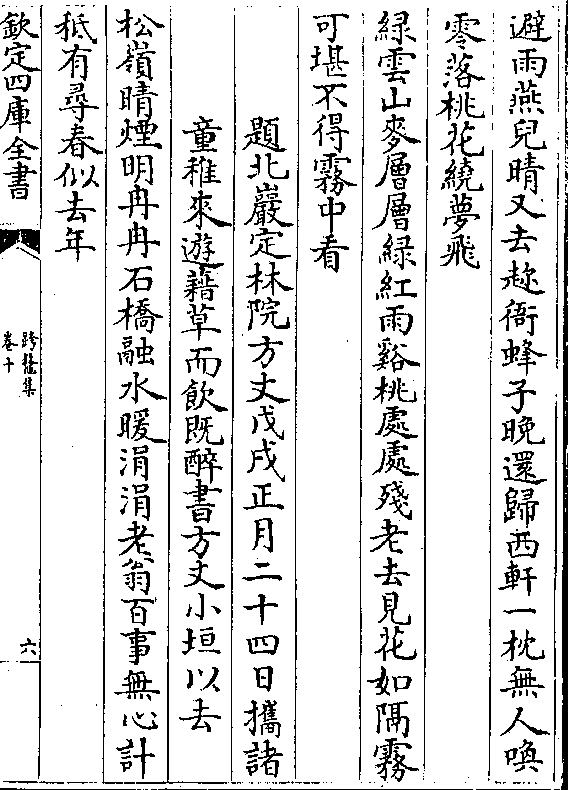 避雨燕兒晴又去趂衙蜂子晚還歸西軒一枕無人喚
零落桃花繞夢飛
綠雲山麥層層綠紅雨谿桃處處殘老去見花如隔霧
可堪不得霧中看
題北巖定林院方丈戊戌正月二十四日攜諸
童稚來遊藉草而飲既醉書方丈小垣以去
松嶺晴煙明冉冉石橋融水暖涓涓老翁百事無心計
秪有尋春似去年
欽定四庫全書
跨鼇集
卷十
六